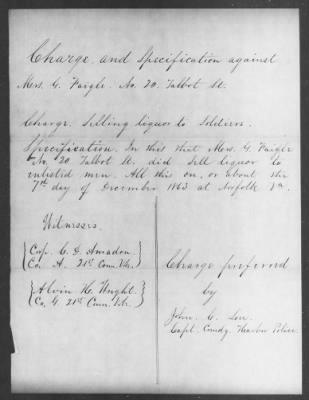 Charge and Specification against
Mrs. G. Faigle. No. 20. Talbot St.
Charge. Selling liquor to Soldiers.
Specification. In this that Mrs. G. Faigle
No. 20, Talbot St. did sell liquor to
enlisted men. All this on, or about the
7th day of December 1863 at Norfolk Va.
Witnesses.
Cap. C. D. Amadon.
Co. A. 21st Conn. Vtr.
Alvin H. Wright.
Co. G. 21st Conn. Vtr.
Charge preferred
by
John C.
Capt. Comdg. Harbor Police